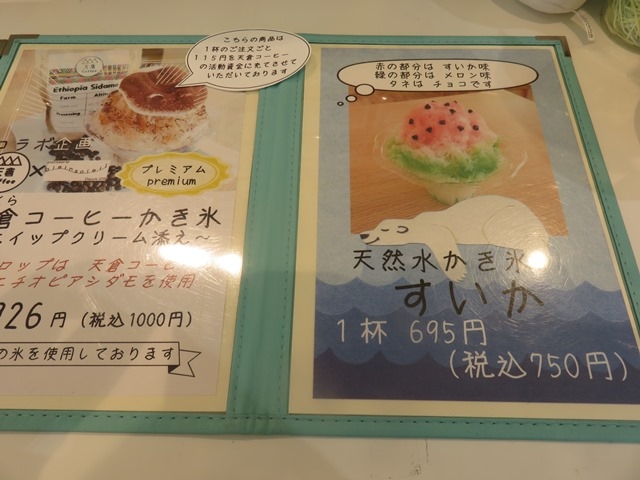 こちらの商品は
1杯のご注文ごと
115円を天倉コーヒー
の活動資金に充てさせて
いただいております
Ethiopia Sidamo
Farm
コラボ企画
プレミアム
premium
倉コーヒーかき氷
イップクリーム添え～
ロップは 天倉コーヒ
エチオピアシダモを使用
926円(税込1000円)
の氷を使用しております
赤の部分は すいか味
緑の部分は メロン味
タネは チョコです
天然水かき氷
すいか
1杯 695円
(税込750円)